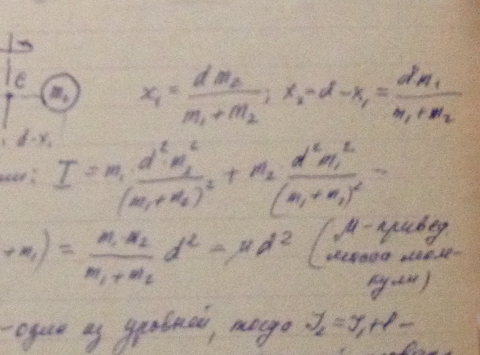 C m₂ x₁ = d m₂ / (m₁ + m₂); x₂ = d - x₁ = d m₁ / (m₁ + m₂)
d - x₁
I = m₁ · d² · m₂² / (m₁ + m₂)² + m₂ d² m₁² / (m₁ + m₁)² =
+ m₁) = m₁ · m₂ / (m₁ + m₂) d² = μ d² (μ - привед.
масса моле-
кулы)
- один из уровней, тогда J₂ = J₁ + 1 -